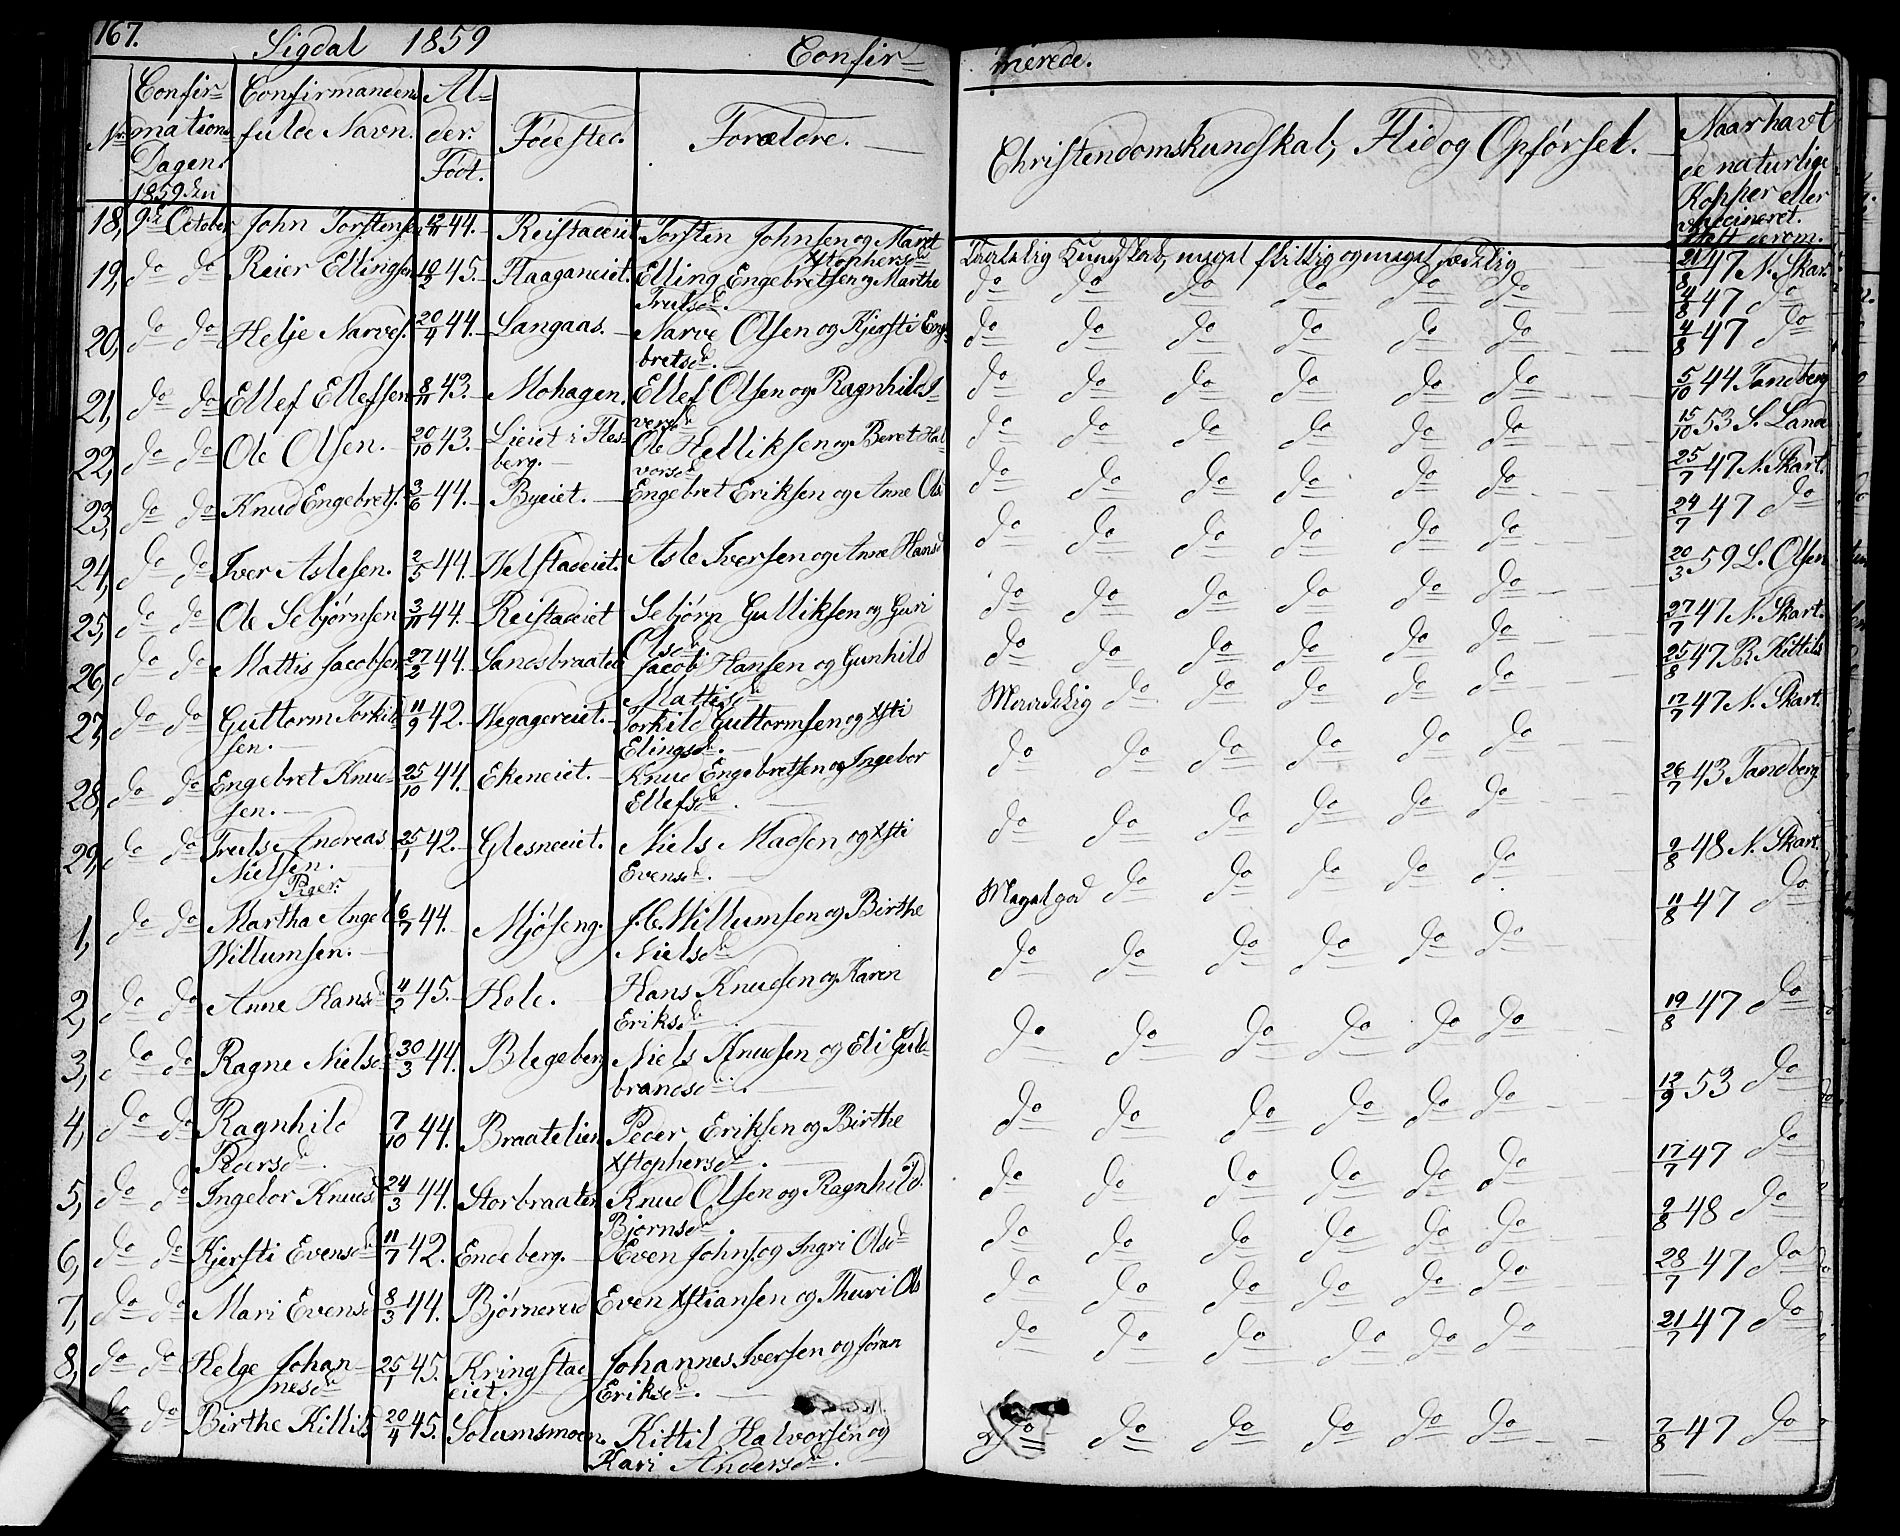 167.
Sigdal 1859
Confir=
merede.
Nr.
Confir=
mations
Dagen.
1859 den
Confirmandens
fulde Navn.
Al=
der.
Född.
Födested.
Forældre.
Christendomskundskab, Flid og Opförsel.
Naar havt
de naturlige
Kopper eller
vaccineret.
Attest derom.
18, 9de October John Torstensen 44. Reistadeiet Torsten Johnsen og Maret
Xstophersd
meget flittig og meget sædelig 47 N. Skart
19, do do Reier Ellingsen 45. Haaganeiet. Elling Engebretsen og Marthe
Trulsd.
do do do do do do 4/8 47 do
20, do do Helje Narves. 20/4 44. Langaas. Narve Olsen og Kjersti Enge
bretsd.
do do do do do do 4/8 47 do
21, do do Ellef Ellefsen 8/11 43. Mohagen. Ellef Olsen og Ragnhild
versd
do do do do do do 5/10 44 Tandberg
22, do do Ole Olsen. 20/10 43. Lieiet i Fles=
berg.
Ole Helliksen og Beret Hal
vorsd
do do do do do do 15/10 53 S. Lande
23, do do Knud Engebrets. 3/6 44. Byeiet. Engebret Eriksen og Anne Olsd
do do do do do do 25/7 47 N. Skart.
24, do do Iver Aslesen. 2/5 44. Helstadeiet. Asle Iversen og Anne Hansd
do do do do do do 24/7 47 do
25, do do Ole Sebjörnsen 3/11 44. Reistadeiet Sebjörn Gulliksen og Guri
Olsd
do do do do do do 20/3 59 L. Olsen
26, do do Mattis Jacobsen 27/2 44. Sandsbraaten Jacob Hansen og Gunhild
Mattisd
do do do do do do 27/7 47 N. Skart.
27, do do Guttorm Torkild
sen.
11/9 42. Hegagereiet. Torkild Guttormsen og Xsti
Elingsd.
do do do do do 25/8 47 R. Kittils
28, do do Engebret Knud=
sen.
25/10 44. Ekeneiet. Knud Engebretsen og Ingebor
Ellefsd.
do do do do do do 17/7 47 N. Skart.
29, do do Truls Andreas
Nielsen.
25/1 42. Glesneeiet. Niels Madsen og Xsti
Evensd.
do do do do do do 26/7 43 Tandberg
Piger.
1, do do Martha Angel
Willumsen.
6/7 44. Mjöseng. J. C. Willumsen og Birthe
Nielsd
Meget god do do do do do 9/8 48 N. Skart.
2, do do Anne Hansd 4/2 45. Hole. Hans Knudsen og Karen
Eriksd
do do do do do do 11/8 47 do
3, do do Ragne Nielsd 30/3 44. Blegeberg Niels Knudsen og Eli Guld
brandsd.
do do do do do do 19/8 47 do
4, do do Ragnhild
Pedersd.
7/10 44. Braatelien Peder Eriksen og Birthe
Xstophersd.
do do do do do do 12/9 53 do
5, do do Ingebor Knudsd 24/3 44. Storbraaten Knud Olsen og Ragnhild
Björnsd
do do do do do do 17/7 47 do
6, do do Kjersti Evensd 11/7 42. Endeberg. Even Johns. og Ingri Olsd
do do do do do do 9/8 48 do
7, do do Mari Evensd 8/3 44. Björnerud Even Xstiansen og Thuri Ols
do do do do do do 28/7 47 do
8, do do Helge Johan=
nesd
25/1 45. Kringstad
eiet.
Johannes Iversen og Jöran
Eriksd.
do do do do do do 21/7 47 do
do do Birthe Kittils 20/4 45. Solumsmoen. Kittil Halvorsen og
Kari Andersd.
do do do do do do 7/8 47 do